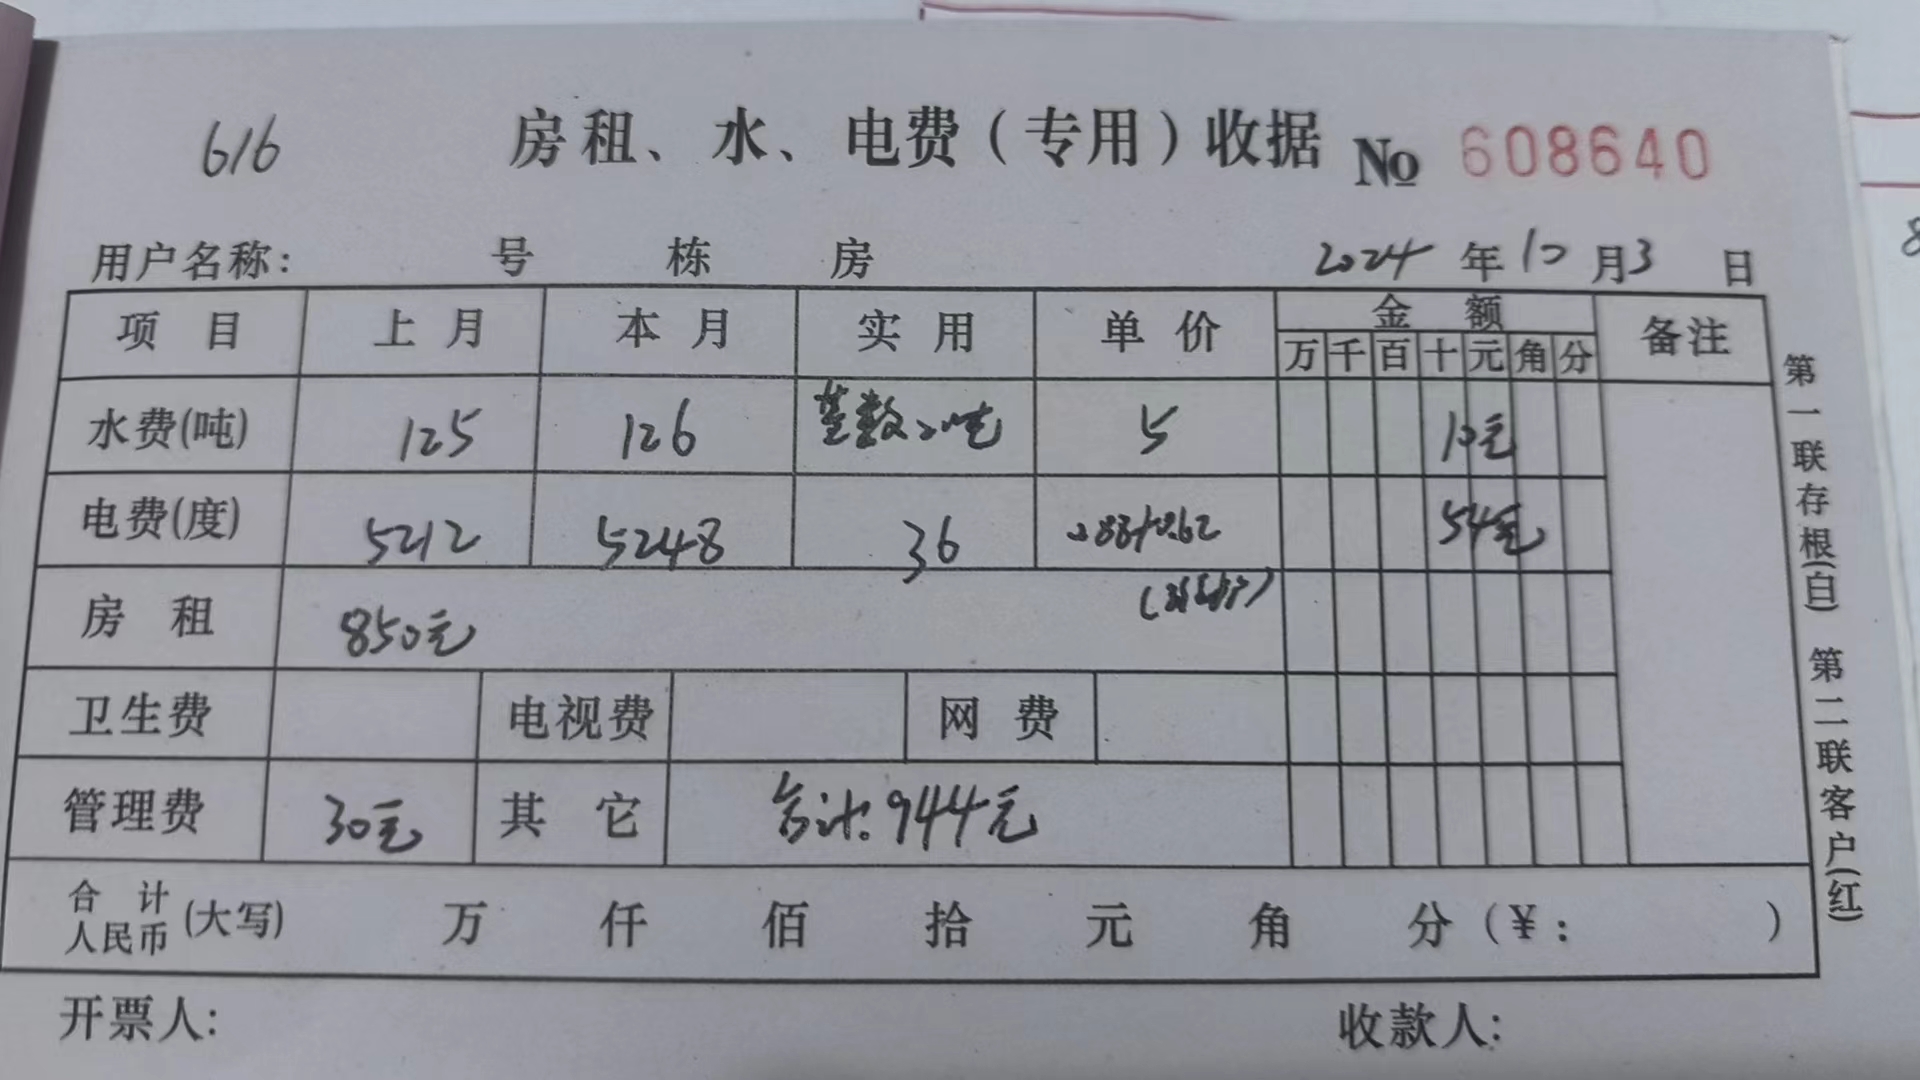 616 房租、水、电费（专用）收据 No 608640
用户名称: 号 栋 房 2024 年 10 月 3 日
项目 上月 本月 实用 单价 金额 备注
万 千 百 十 元 角 分
水费(吨) 125 126 基数2吨 5 10元
电费(度) 5212 5248 36 0.88+0.62 54元
房租 850元
卫生费 电视费 网费
管理费 30元 其它 合计:944元
合计人民币(大写) 万 仟 佰 拾 元 角 分(¥: )
开票人: 收款人:
第一联存根(白) 第二联客户(红)